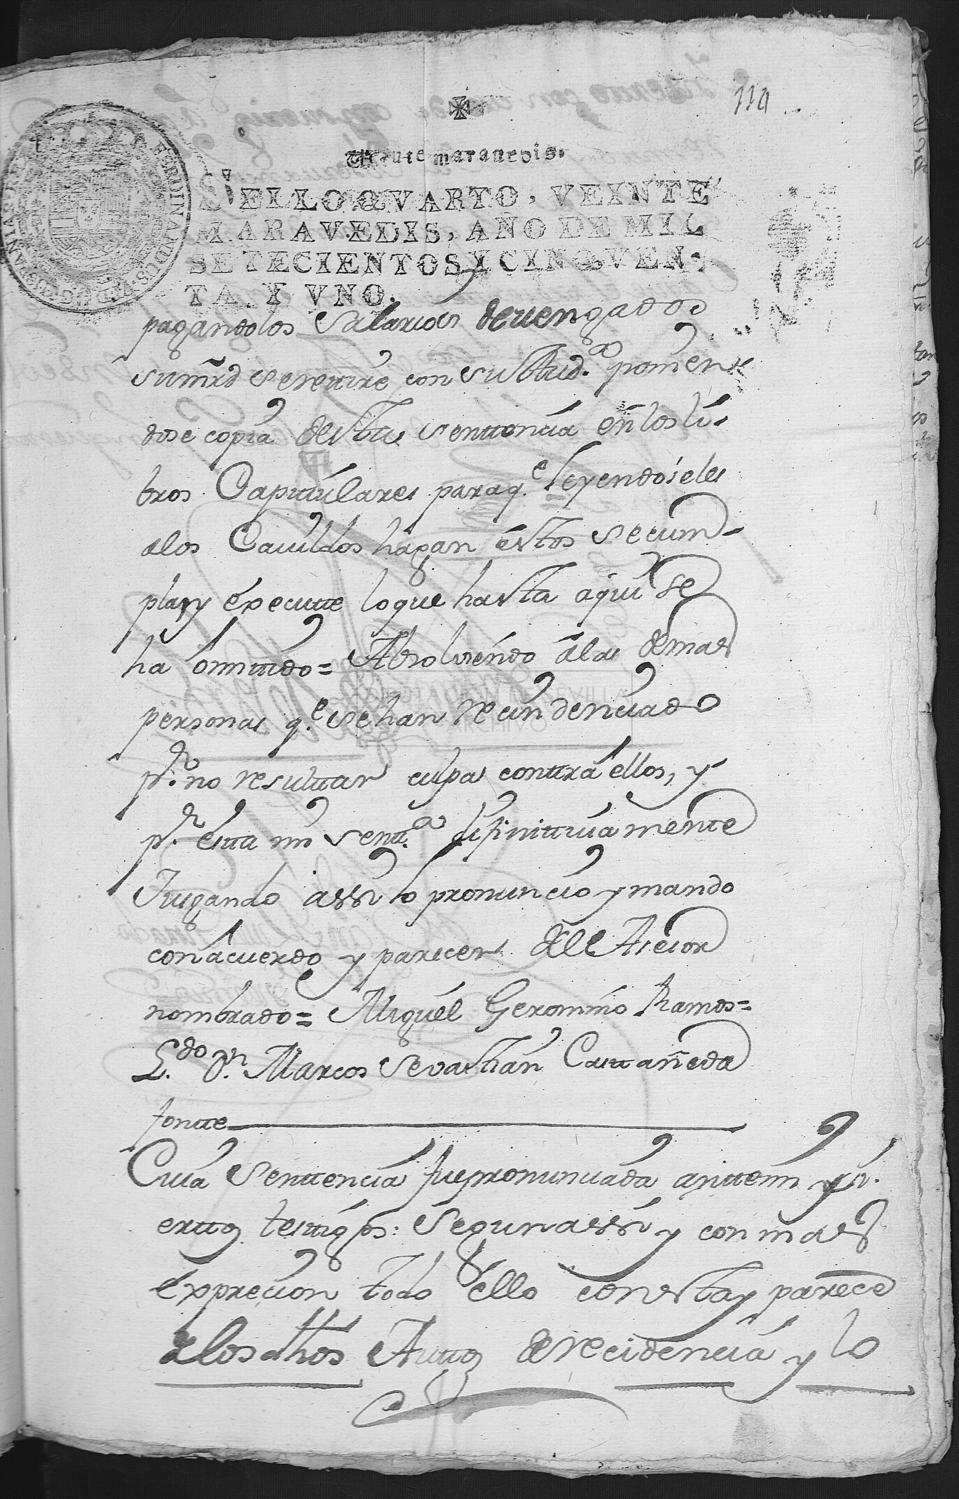 119
Veinte maravedis.
SELLO QVARTO, VEINTE
MARAVEDIS, AÑO DE MIL
SETECIENTOS Y CINQVEN-
TA Y VNO.
pagandolos Salarios devengados
su mrd se retire con su Aud.ª ponien
dose copia desta sentencia en los li-
bros Capitulares para q.e leyendose les
a los Cavildos hagan estos se cum-
pla y execute lo que hasta aqui se
ha omitido = Absolviendo a las demas
personas q.e se han recindenciado
p.r no resultar culpa contra ellos, y
p.r esta mi sent.a difinitivamente
Jusgando assi lo pronuncio y mando
con acuerdo y parecer del Asesor
nombrado = Miguel Geronimo Ramos =
L.do D.n Marcos Sevastian Castañeda
fontte
Cuia Senttencia fue pronunciada antte mi y
cierttos testigos: Segun assi y con mas
exprecion todo ello consta y parece
de los dhos Auttos de recidencia y lo
NOTARIAL DE SEVILLA
ARCHIVO